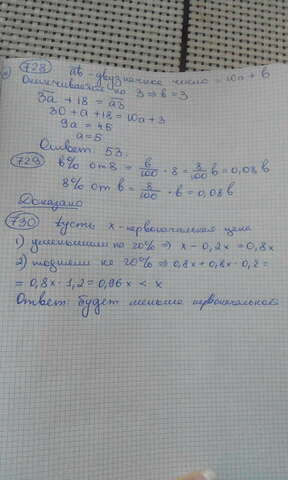 728 āb - двузначное число = 10a + b
Оканчивается на 3 ⇒ b = 3
3a + 18 = a3
30 + a + 18 = 10a + 3
9a = 45
a = 5
Ответ: 53.
729 b% от 8 = b/100 · 8 = 8/100 b = 0,08 b
8% от b = 8/100 · b = 0,08 b
Доказано
730 Пусть x - первоначальная цена
1) уменьшили на 20% ⇒ x - 0,2x = 0,8x
2) подняли на 20% ⇒ 0,8x + 0,8x · 0,2 =
= 0,8x · 1,2 = 0,96x < x
Ответ: будет меньше первоначальной